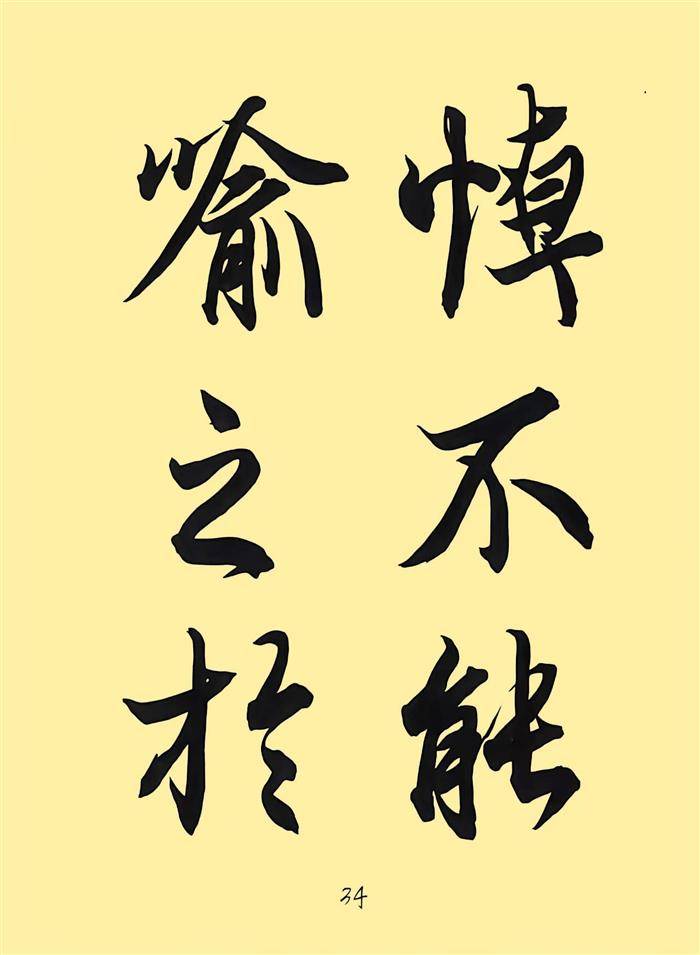 悼不能
喻之於
34